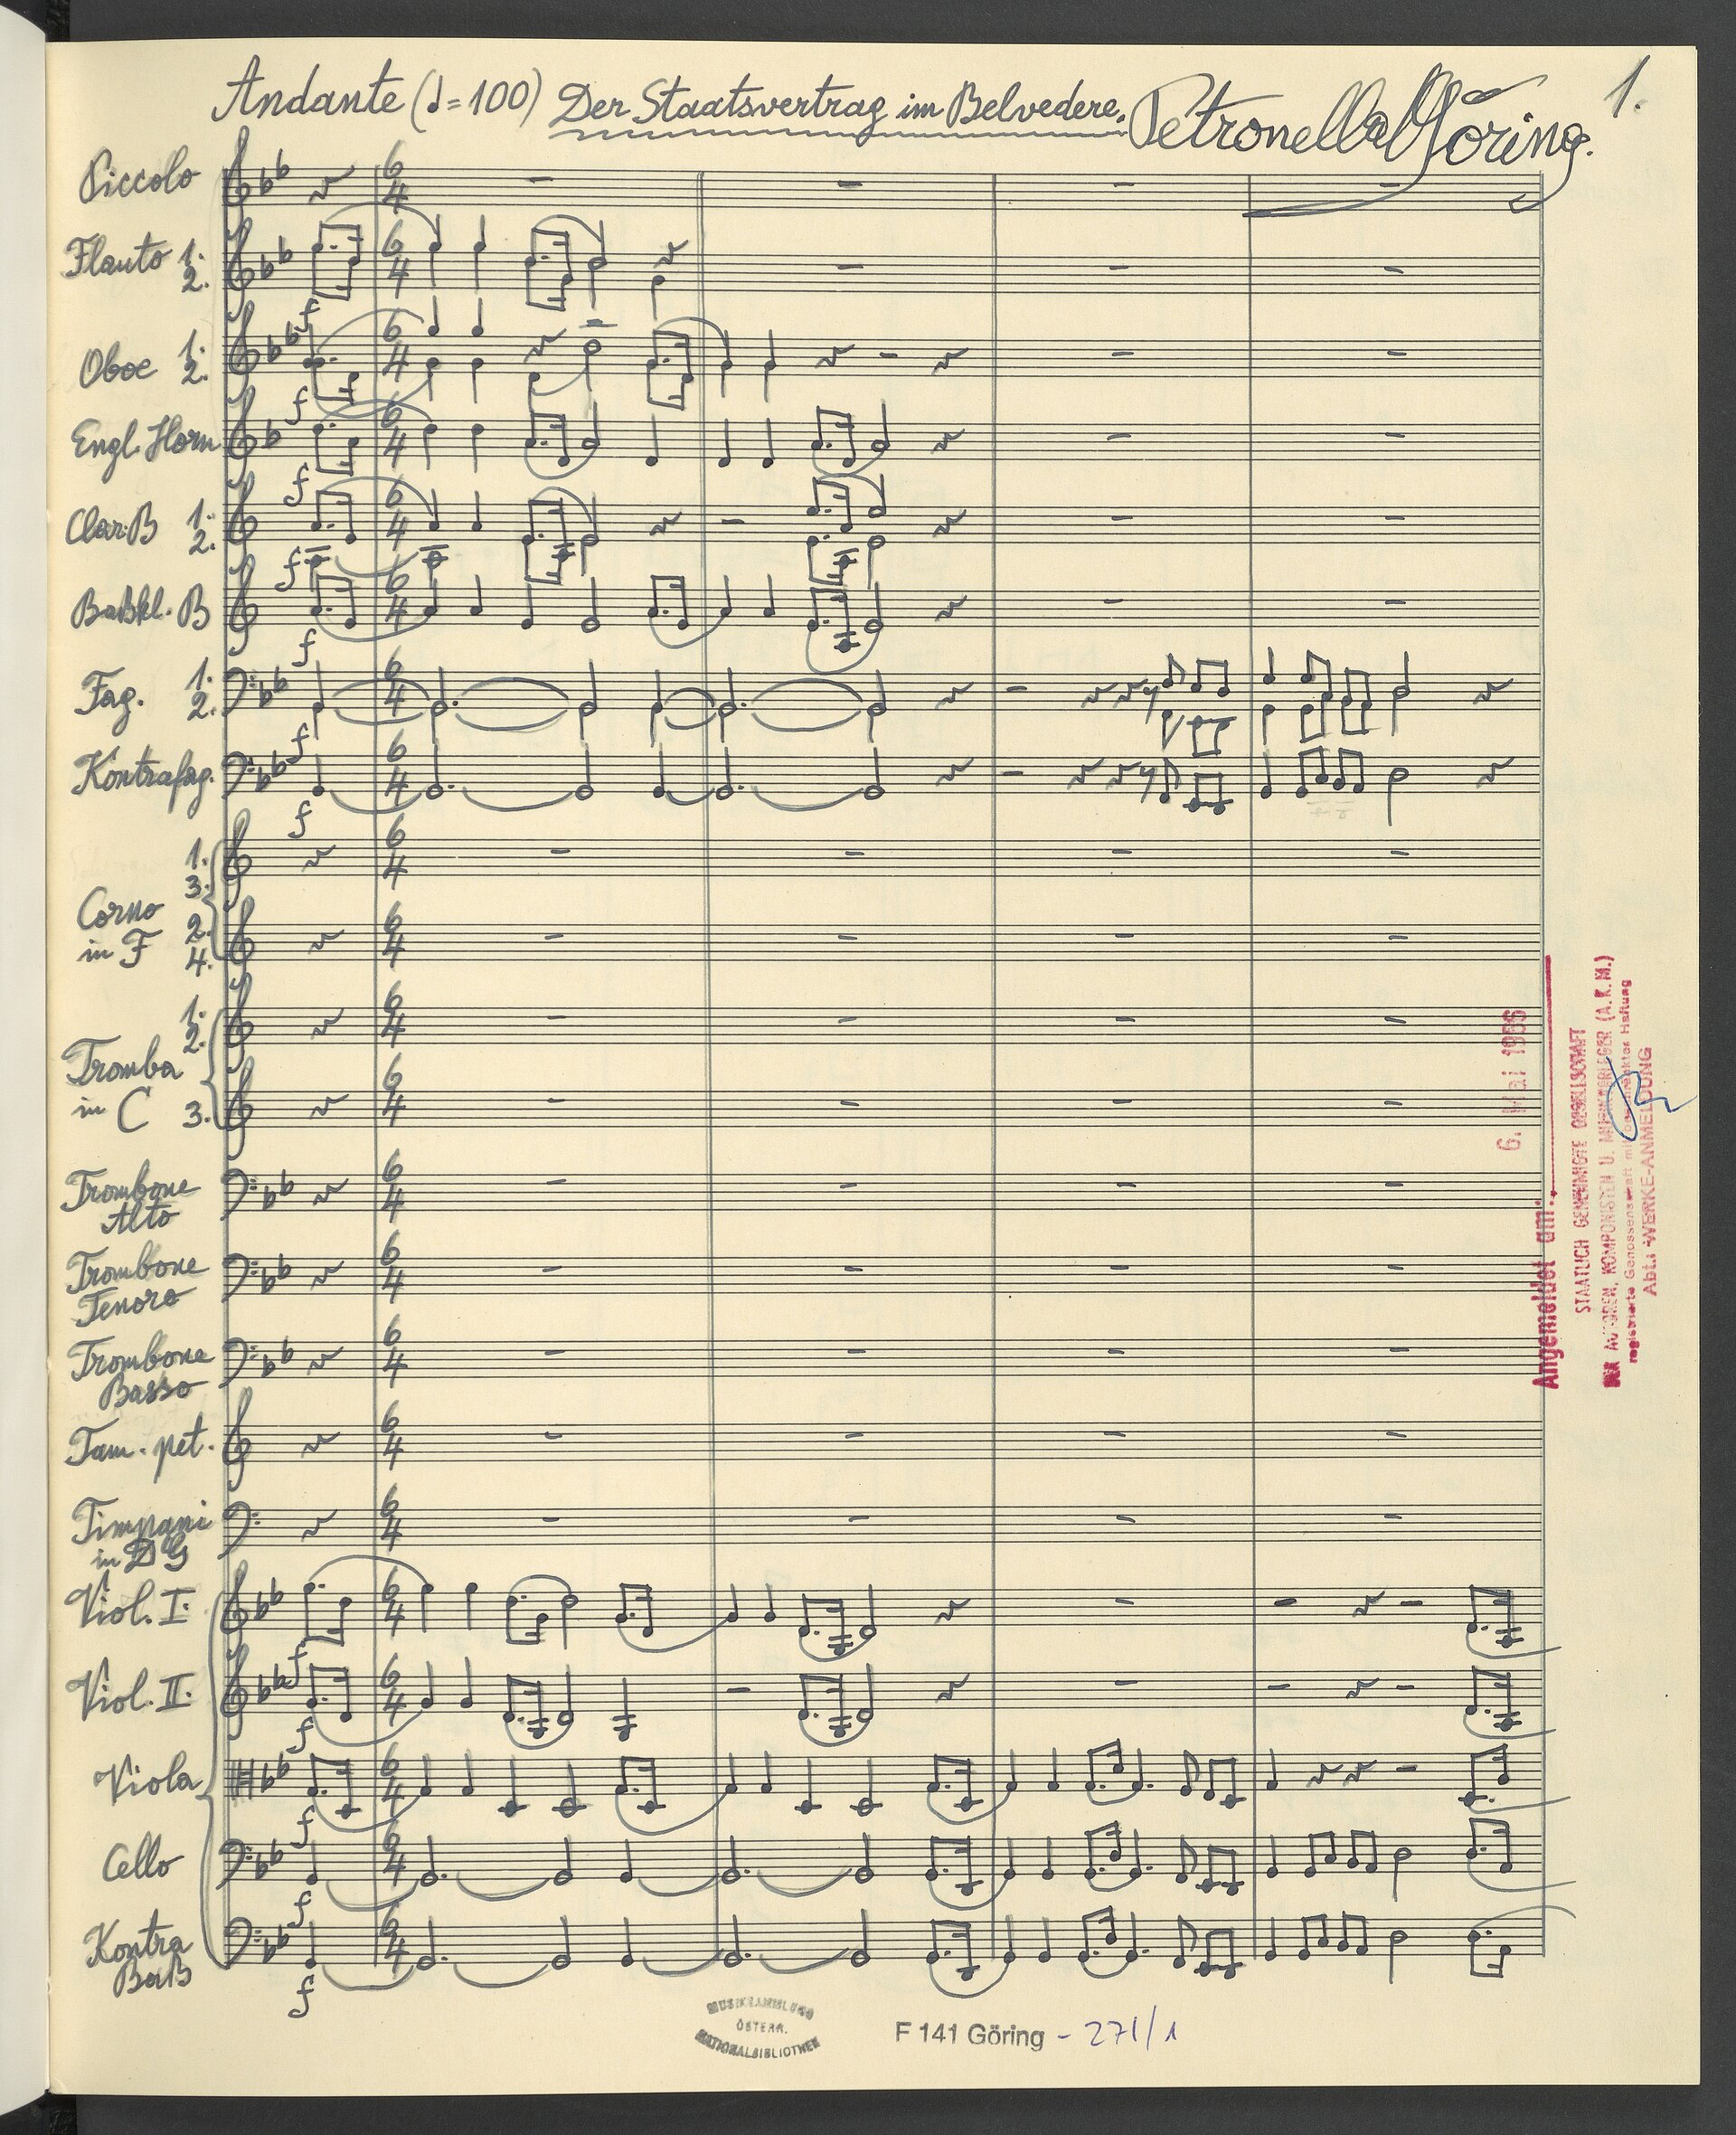 Andante (♩=100) Der Staatsvertrag im Belvedere. Petronella Göring. 1.
Piccolo
Flauto 1. 2.
f
Oboe 1. 2.
f
Engl. Horn
f
Clar. B 1. 2.
f
Baßkl. B
f
Fag. 1. 2.
f
Kontrafag.
f
Corno in F 1. 3. 2. 4.
Tromba in C 1. 2. 3.
Trombone Alto
Trombone Tenoro
Trombone Basso
Tam. pet.
Timpani in D G
Viol. I.
f
Viol. II.
f
Viola
f
Cello
f
Kontra Baß
f
6 4
6. Mai 1966
Angemeldet am:
STAATLICH GENEHMIGTE GESELLSCHAFT
DER AUTOREN, KOMPONISTEN U. MUSIKVERLEGER (A.K.M.)
registrierte Genossenschaft mit beschränkter Haftung
Abt.: WERKE-ANMELDUNG
MUSIKSAMMLUNG
ÖSTERR.
NATIONALBIBLIOTHEK
F 141 Göring - 271/1